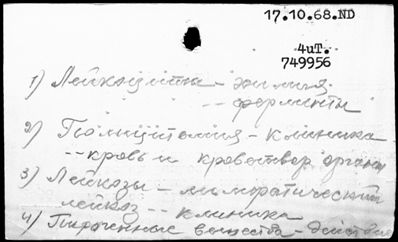 17.10.68.ND
4uT.
749956
1) Лейкоциты - химия
-- ферменты
2) Полицитемия - клиника
-- кровь и кроветвор. органы
3) Лейкозы - лимфатический
лейкоз -- клиника
4) вещества - действие